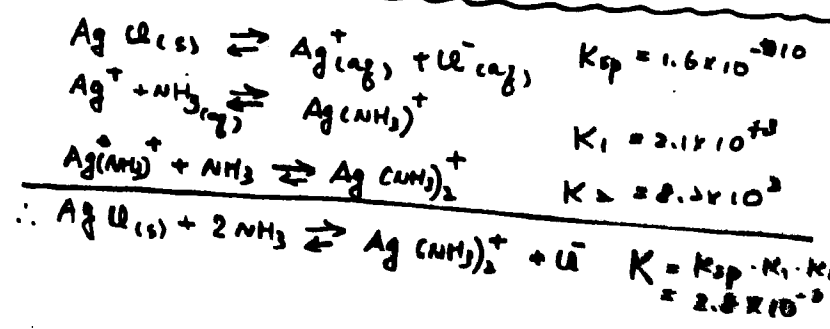 AgCl(s) ⇌ Ag⁺(aq) + Cl⁻(aq) Ksp = 1.6 × 10⁻¹⁰
Ag⁺ + NH₃(aq) ⇌ Ag(NH₃)⁺ K₁ = 2.1 × 10⁺³
Ag(NH₃)⁺ + NH₃ ⇌ Ag(NH₃)₂⁺ K₂ = 8.2 × 10³
∴ AgCl(s) + 2NH₃ ⇌ Ag(NH₃)₂⁺ + Cl⁻ K = Ksp · K₁ · K
= 2.8 × 10⁻³